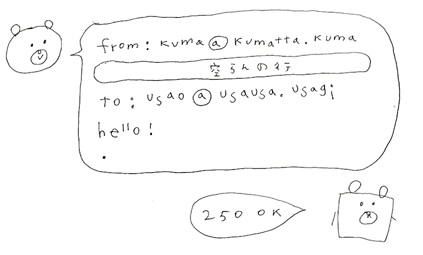 from: kuma@kumatta.kuma
空らんの行
to: usao@usausa.usagi
hello!
.
250 OK